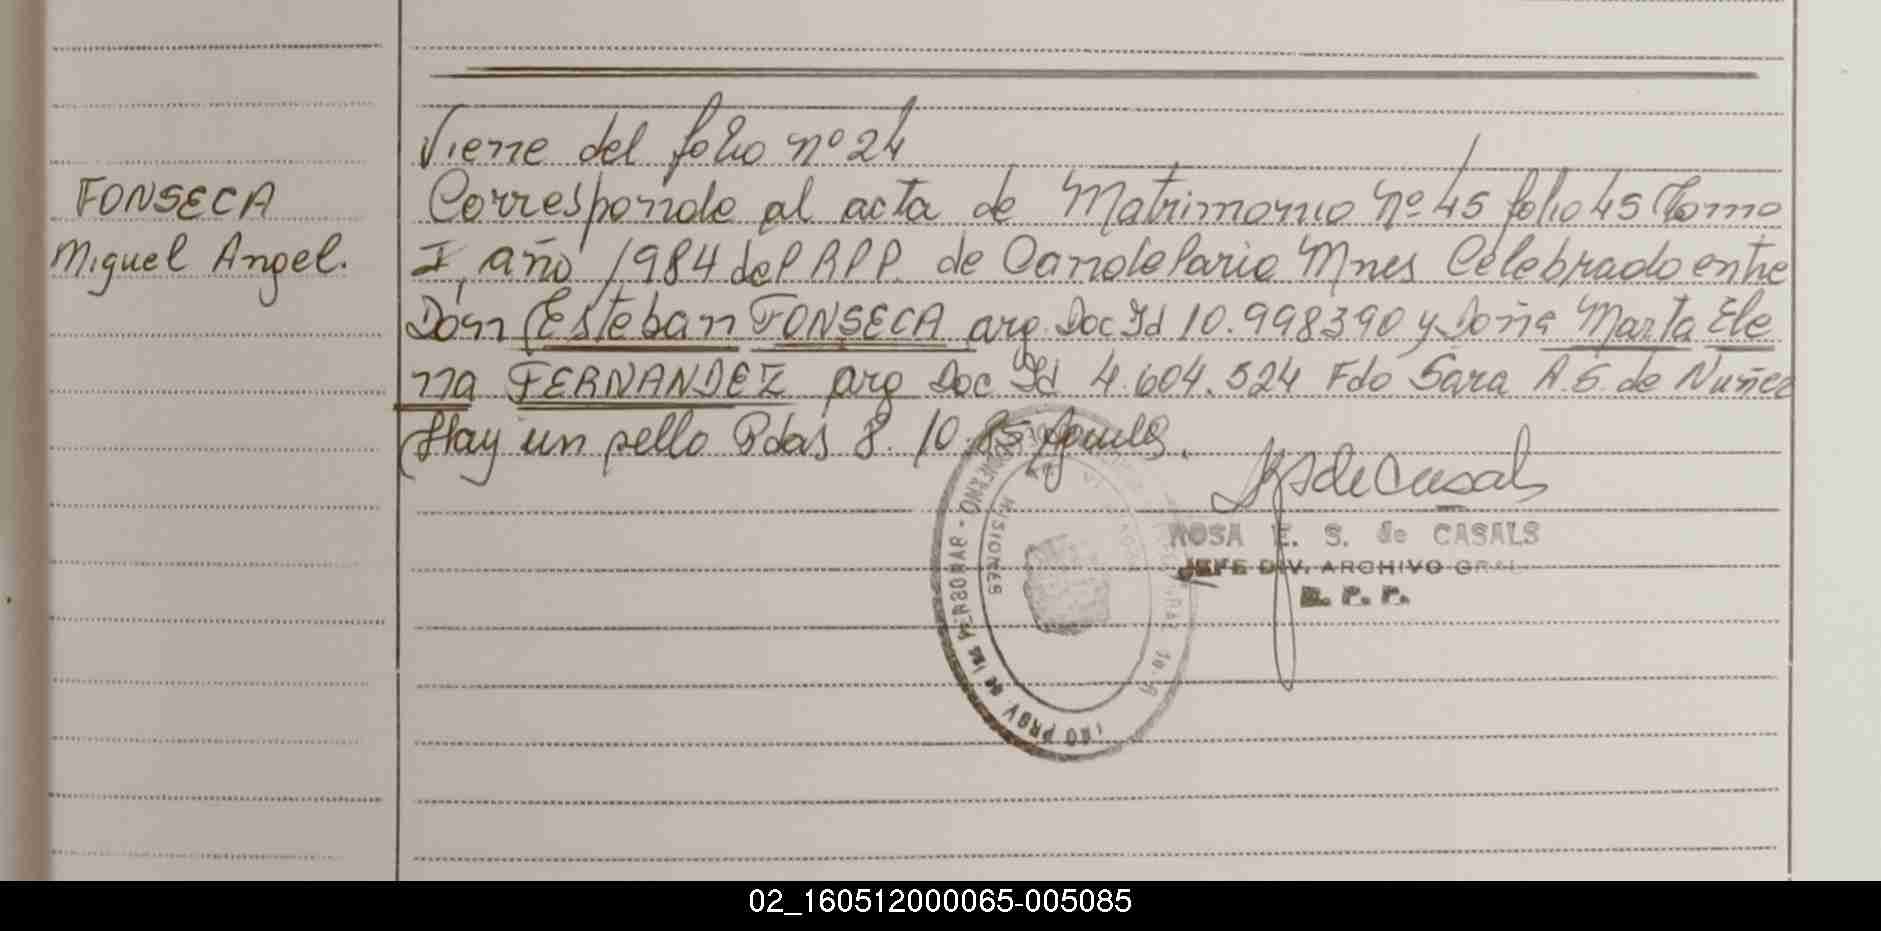 Viene del folio nº 24
FONSECA
Miguel Angel.
Corresponde al acta de Matrimonio nº 45 folio 45 Tomo
I, año 1984 del RPP. de Candelaria Mnes Celebrado entre
Don Esteban FONSECA arg. Doc Id 10.998390 y Doña Marta Ele
na FERNANDEZ arg Doc Id 4.604.524 Fdo Sara A.S. de Nuñez
Hay un sello Pdas 8. 10. 85
ROSA E. S. de CASALS
JEFE DIV. ARCHIVO GRAL
R. P. P.
PROV de las PERSONAS - GOBIERNO
MISIONES
02_160512000065-005085